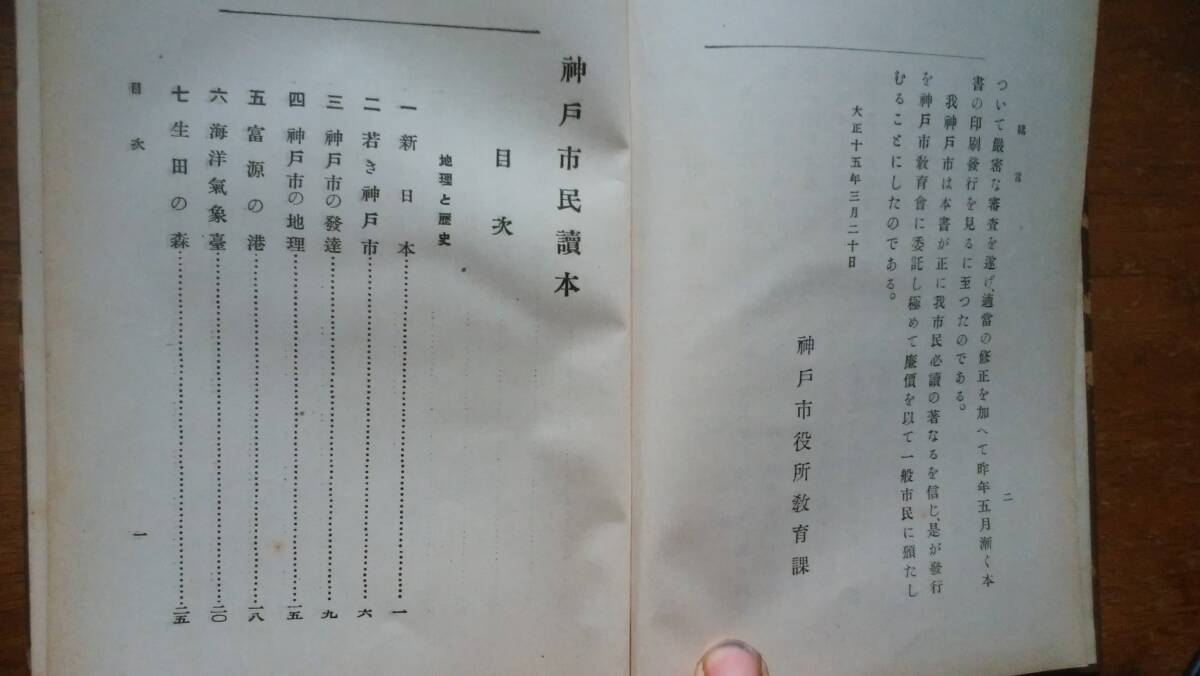 緒言
二
ついて嚴密な審査を遂げ、適當の修正を加へて昨年五月漸く本
書の印刷發行を見るに至つたのである。
我神戸市は本書が正に我市民必讀の著なるを信じ、是が發行
を神戸市教育會に委託し極めて廉價を以て一般市民に頒たし
むることにしたのである。
大正十五年三月二十日
神戸市役所教育課
神戸市民讀本
目次
地理と歴史
一 新日本……一
二 若き神戸市……六
三 神戸市の發達……九
四 神戸市の地理……一五
五 富源の港……一八
六 海洋氣象臺……二〇
七 生田の森……二五
目次
一